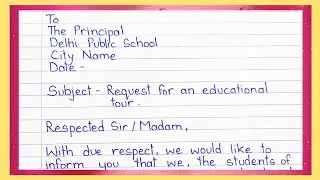 To
The Principal
Delhi Public School
City Name
Date -
Subject - Request for an educational
tour.
Respected Sir / Madam,
With due respect, we would like to
inform you that we, the students of